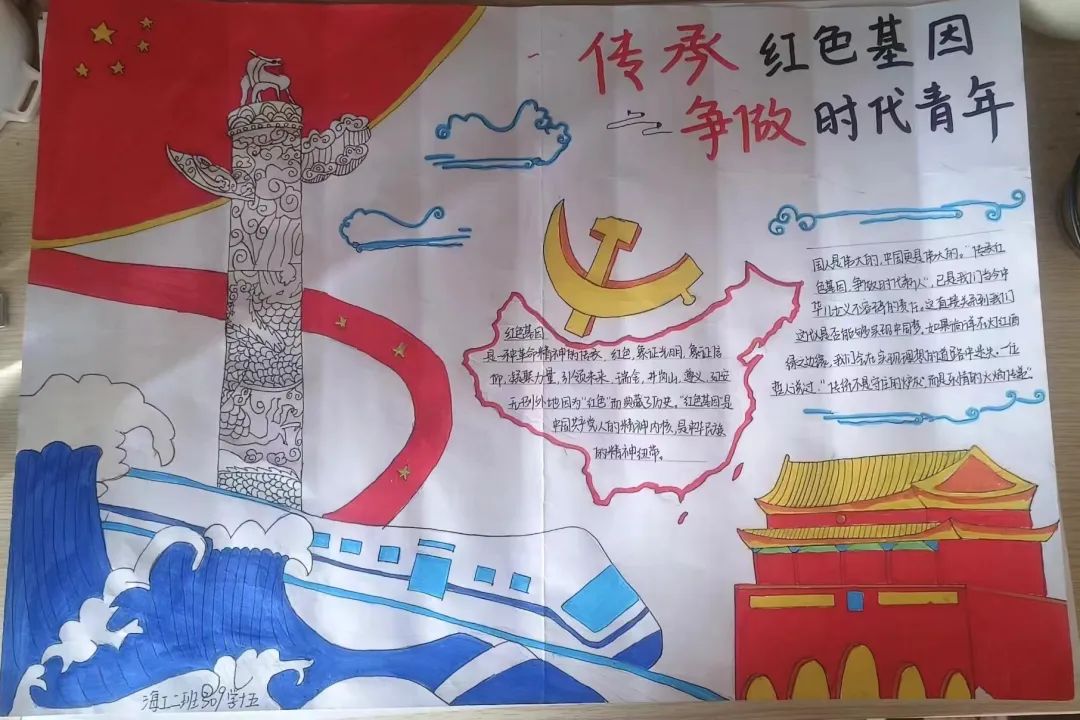 传承 红色基因
争做 时代青年
国人是伟大的，中国更是伟大的。"传承红
色基因，争做时代新人"，已是我们当今中
华儿女义不容辞的责任。这直接关系到我们
这代人是否能够实现中国梦，如果倘徉在灯红酒
绿之边缘，我们会在实现理想的道路中迷失。一位
哲人说过："传统不是守旧的炉灰，而是热情的火焰传递"
红色基因
是一种革命精神的传承，红色，象征光明，象征信
仰，凝聚力量，引领未来，瑞金，井冈山，遵义，延安
无例外地因为"红色"而典藏了历史。"红色基因"是
中国共产党人的精神内核，是中华民族
的精神纽带。
海工二班